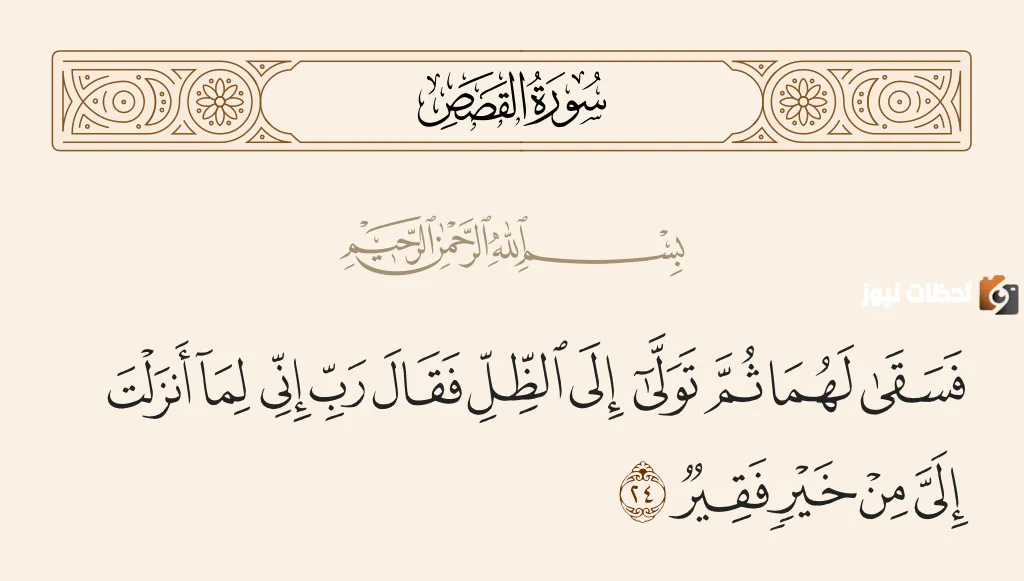 سُورَةُ القَصَصِ
بِسْمِ ٱللَّهِ ٱلرَّحْمَٰنِ ٱلرَّحِيمِ
لحظات نيوز
فَسَقَىٰ لَهُمَا ثُمَّ تَوَلَّىٰٓ إِلَى ٱلظِّلِّ فَقَالَ رَبِّ إِنِّي لِمَآ أَنزَلْتَ
إِلَىَّ مِنْ خَيْرٍ فَقِيرٌ ٢٤